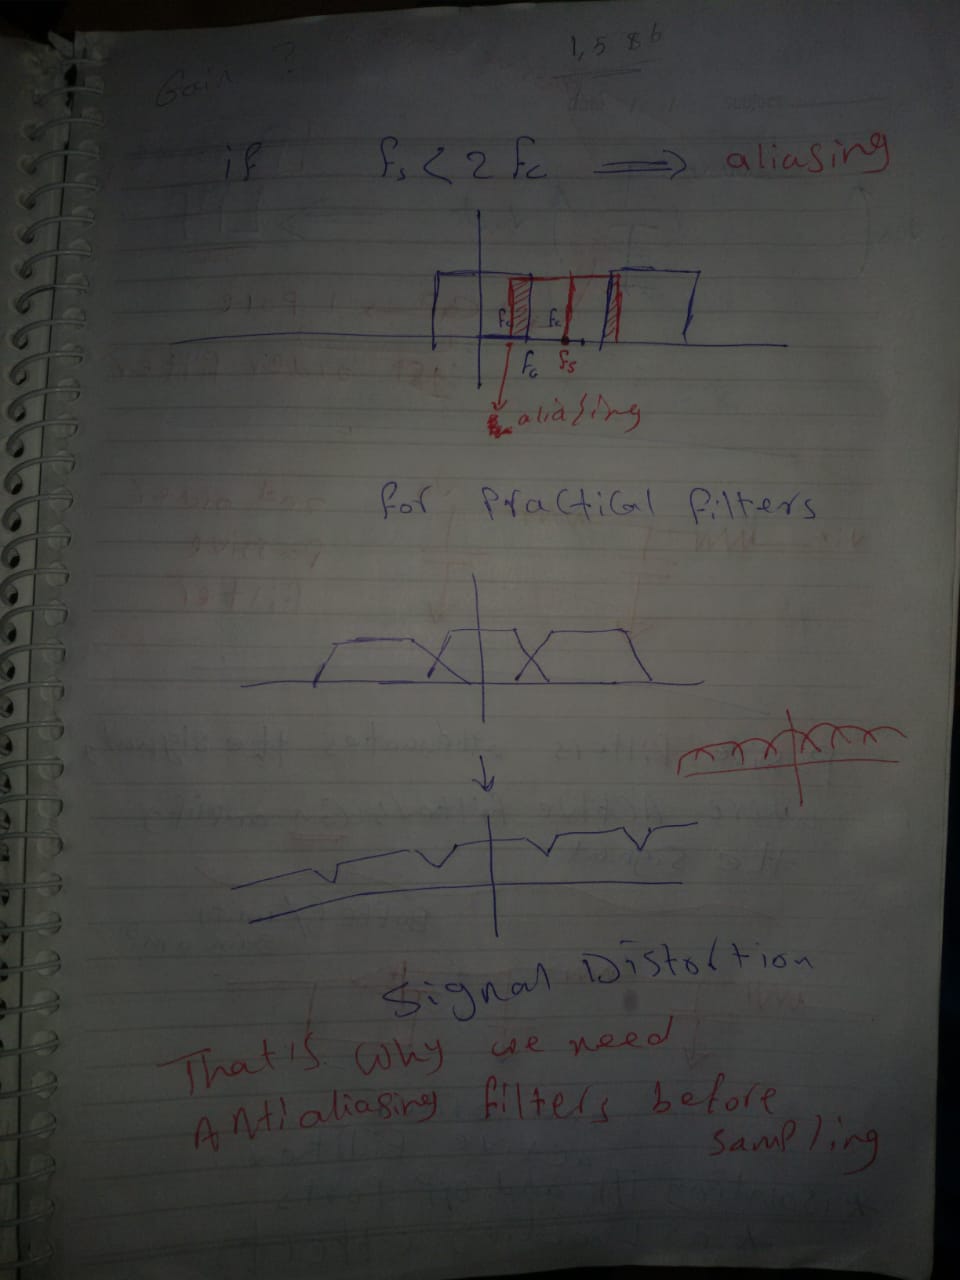 Gain ?
1,586
date / / subject
if fs < 2 fc ⟹ aliasing
fc fc
fc fs
aliasing
for Practical filters
Signal Distortion
That's why we need
Antialiasing filters before
sampling